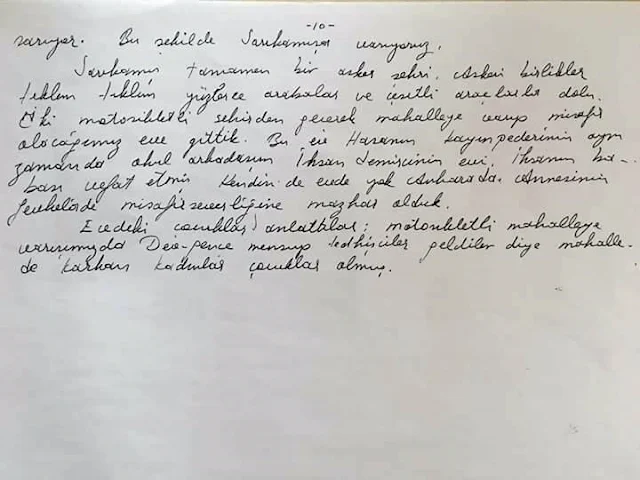 -10-
sarıyor. Bu şekilde Sarıkamışa varıyoruz.
Sarıkamış tamamen bir asker şehri. Askeri birlikler
tıklım tıklım yüzlerce arabalar ve çeşitli araçlarla dolu.
İki motosikletli şehirden geçerek mahalleye varıp misafir
olacağımız eve gittik. Bu ev Hasanın kayınpederinin aynı
zamanda okul arkadaşım İhsan Demircinin evi. İhsanın ba-
bası vefat etmiş kendin de evde yok Ankarada. Annesinin
fevkelade misafirseverliğine mazhar olduk.
Evdeki çocuklar anlattılar; motosikletli mahalleye
varışımızda mensup tedhişciler geldiler diye mahalle-
de korkan kadınlar çocuklar olmuş.